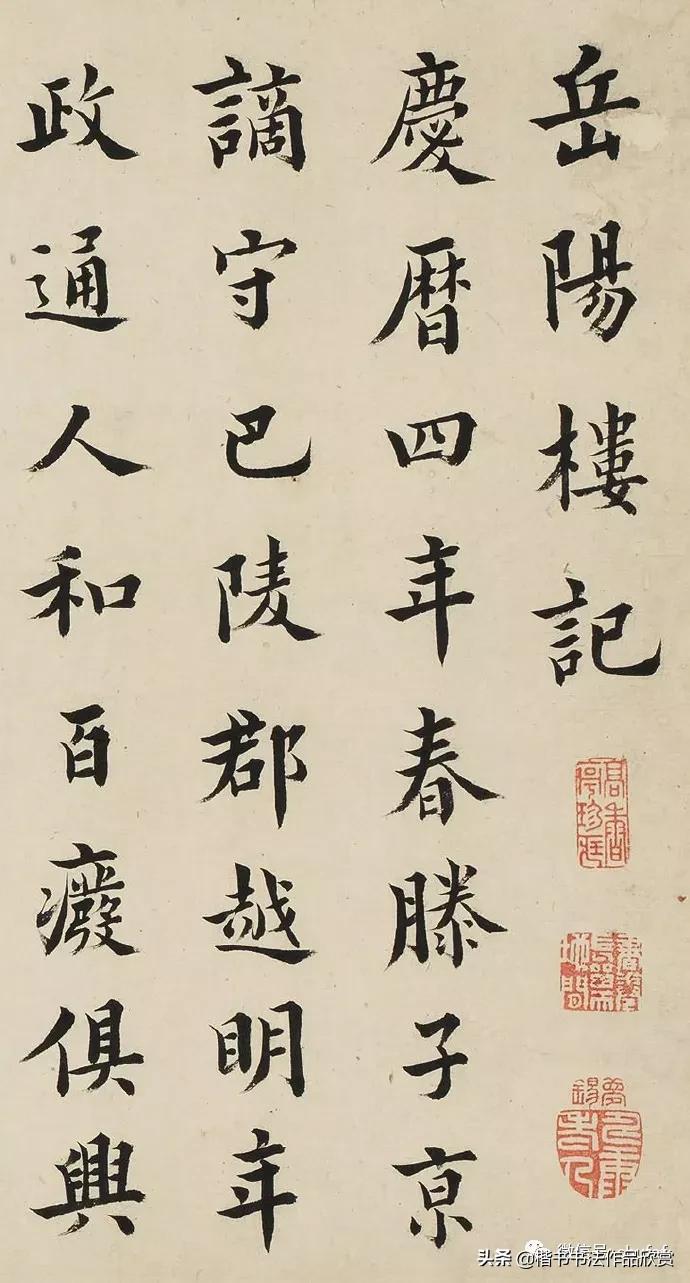 岳陽樓記
慶曆四年春滕子京
謫守巴陵郡越明年
政通人和百癈俱興
头条 @楷书书法作品欣赏